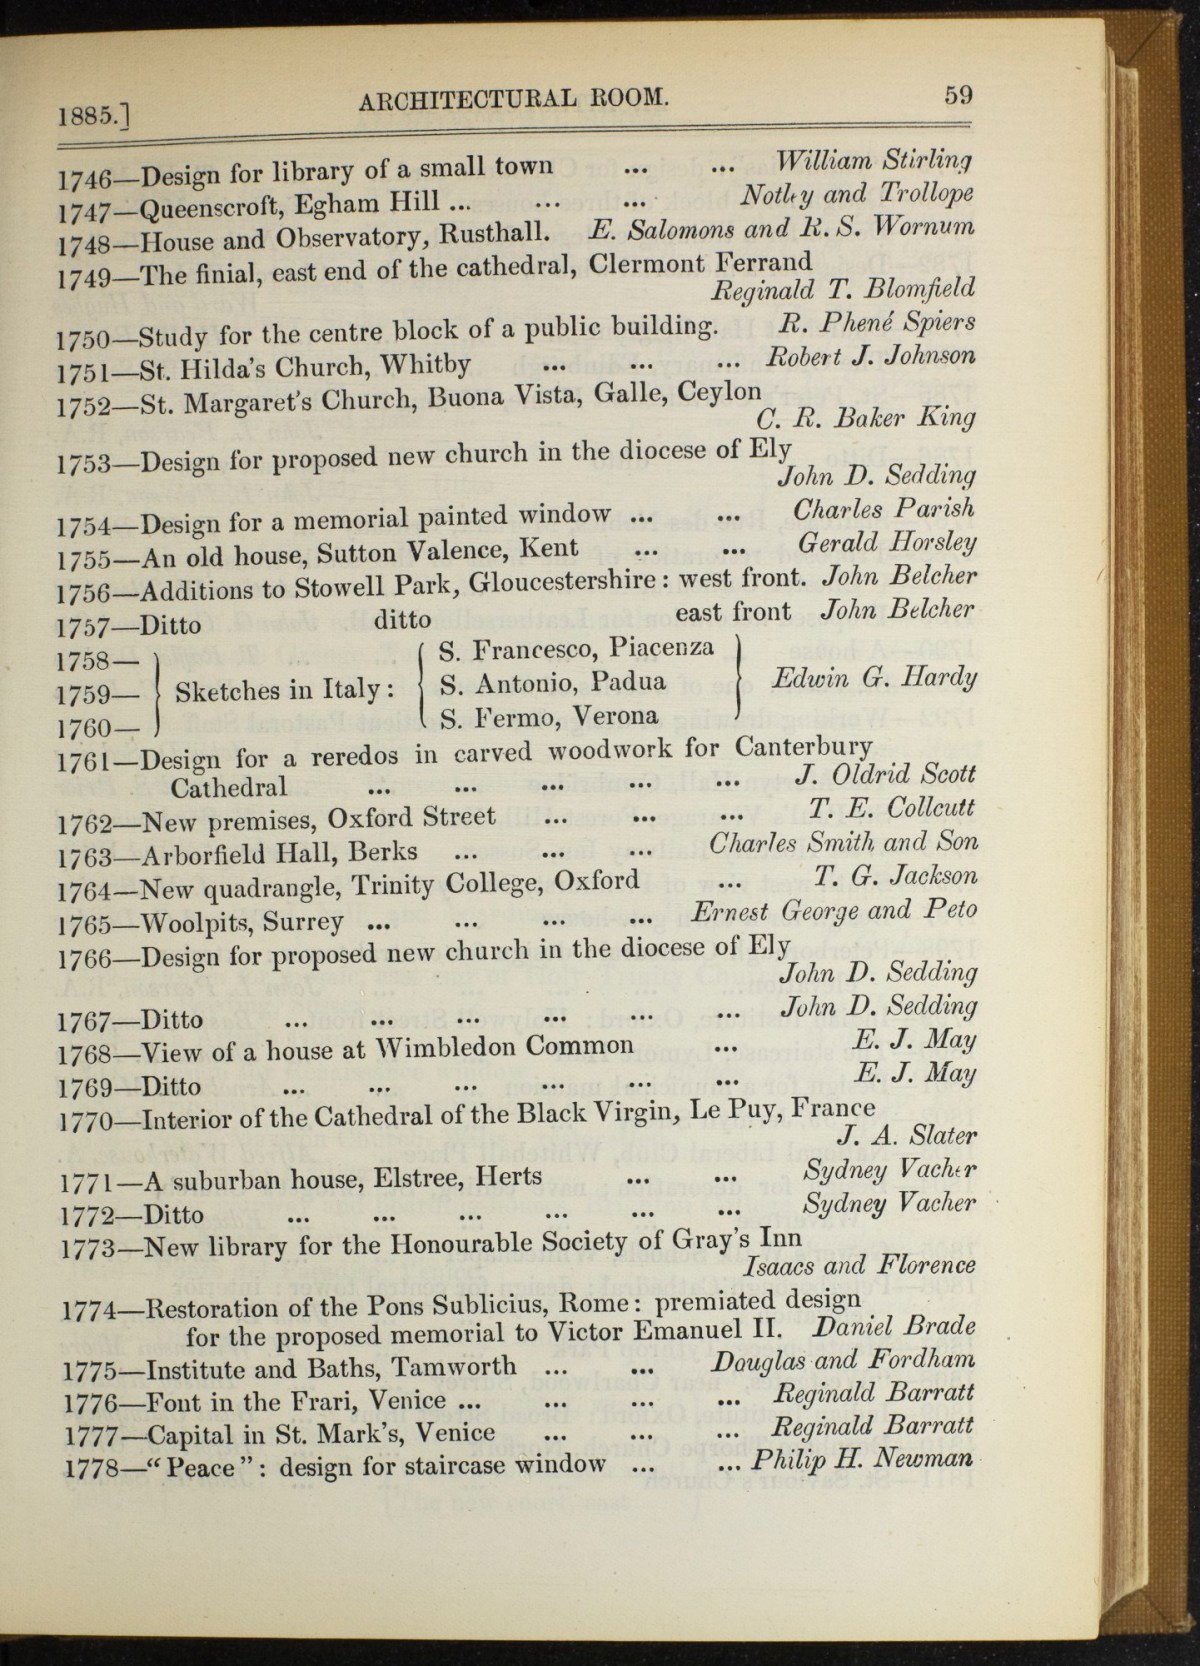 1885.] ARCHITECTURAL ROOM. 59
1746—Design for library of a small town ... ... William Stirling
1747—Queenscroft, Egham Hill ... ... ... Notley and Trollope
1748—House and Observatory, Rusthall. E. Salomons and R. S. Wornum
1749—The finial, east end of the cathedral, Clermont Ferrand
Reginald T. Blomfield
1750—Study for the centre block of a public building. R. Phené Spiers
1751—St. Hilda's Church, Whitby ... ... ... Robert J. Johnson
1752—St. Margaret's Church, Buona Vista, Galle, Ceylon
C. R. Baker King
1753—Design for proposed new church in the diocese of Ely
John D. Sedding
1754—Design for a memorial painted window ... ... Charles Parish
1755—An old house, Sutton Valence, Kent ... ... Gerald Horsley
1756—Additions to Stowell Park, Gloucestershire: west front. John Belcher
1757—Ditto ditto east front John Belcher
1758— S. Francesco, Piacenza
1759— Sketches in Italy: S. Antonio, Padua Edwin G. Hardy
1760— S. Fermo, Verona
1761—Design for a reredos in carved woodwork for Canterbury
Cathedral ... ... ... ... ... J. Oldrid Scott
1762—New premises, Oxford Street ... ... ... T. E. Collcutt
1763—Arborfield Hall, Berks ... ... ... Charles Smith and Son
1764—New quadrangle, Trinity College, Oxford ... T. G. Jackson
1765—Woolpits, Surrey ... ... ... ... Ernest George and Peto
1766—Design for proposed new church in the diocese of Ely
John D. Sedding
1767—Ditto ... ... ... ... ... ... John D. Sedding
1768—View of a house at Wimbledon Common ... E. J. May
1769—Ditto ... ... ... ... ... ... E. J. May
1770—Interior of the Cathedral of the Black Virgin, Le Puy, France
J. A. Slater
1771—A suburban house, Elstree, Herts ... ... Sydney Vacher
1772—Ditto ... ... ... ... ... ... Sydney Vacher
1773—New library for the Honourable Society of Gray's Inn
Isaacs and Florence
1774—Restoration of the Pons Sublicius, Rome: premiated design
for the proposed memorial to Victor Emanuel II. Daniel Brade
1775—Institute and Baths, Tamworth ... ... Douglas and Fordham
1776—Font in the Frari, Venice ... ... ... ... Reginald Barratt
1777—Capital in St. Mark's, Venice ... ... ... Reginald Barratt
1778—“Peace”: design for staircase window ... ... Philip H. Newman